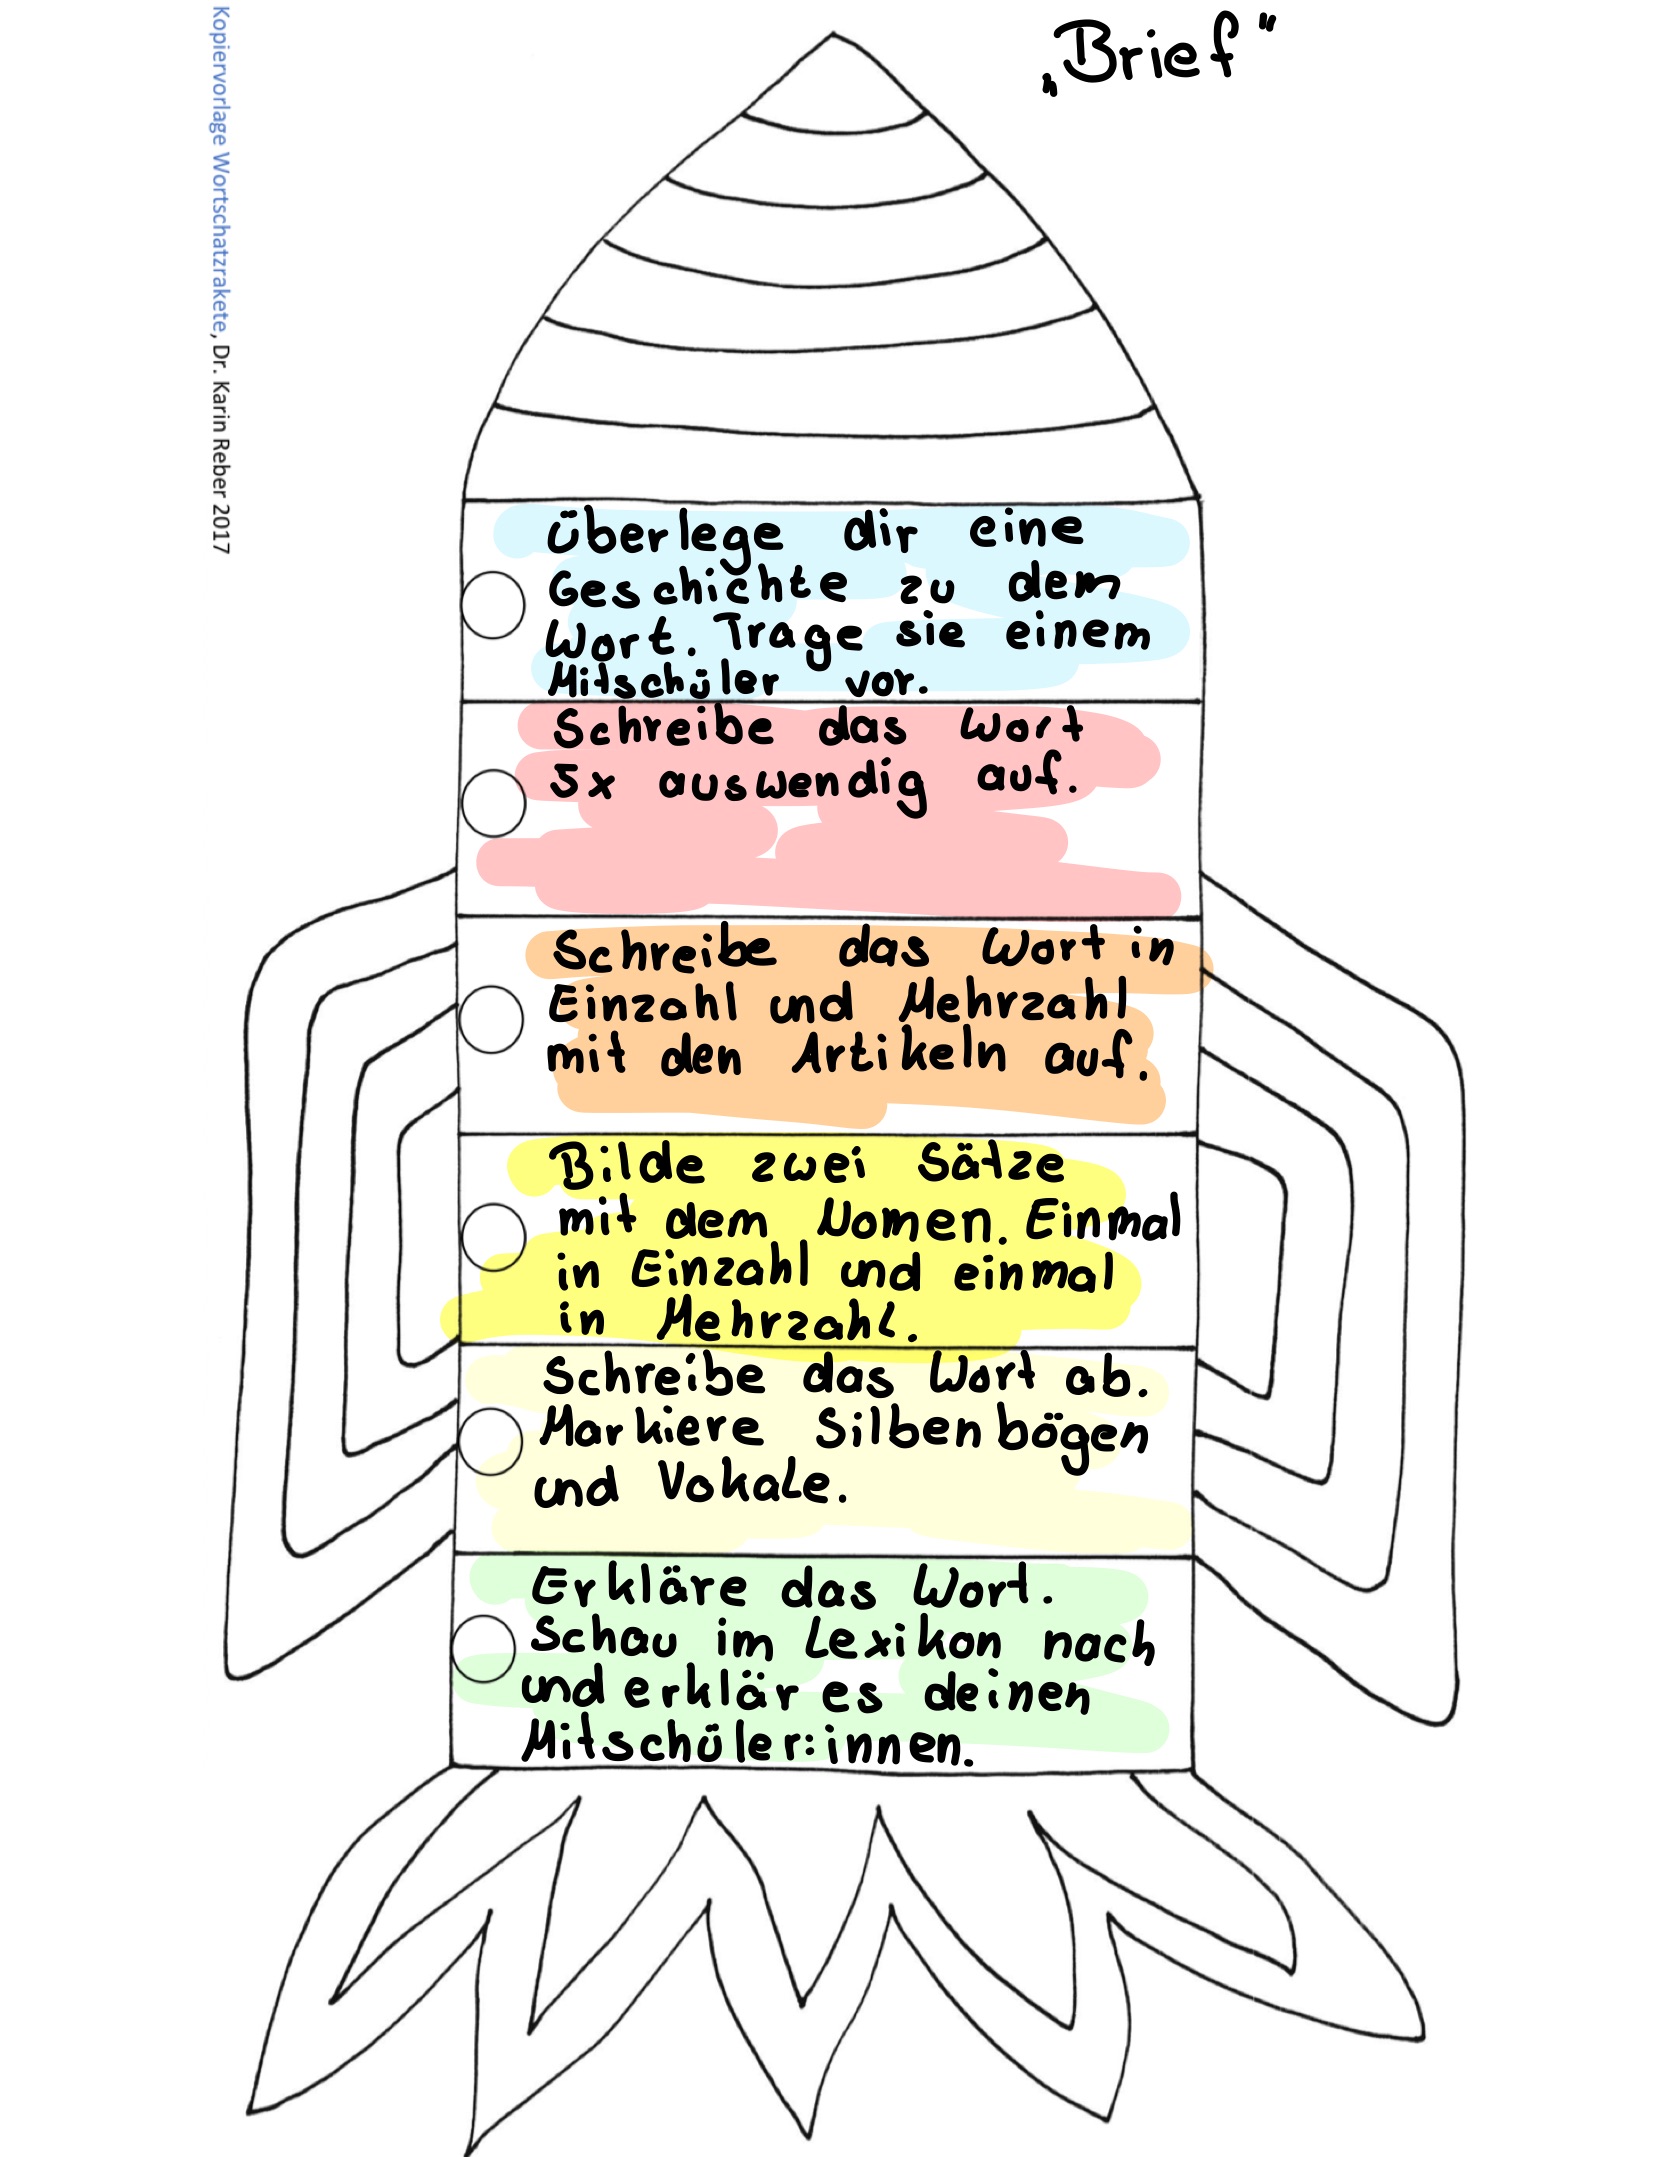 „Brief"
Kopiervorlage Wortschatzrakete, Dr. Karin Reber 2017
Überlege dir eine
Geschichte zu dem
Wort. Trage sie einem
Mitschüler vor.
Schreibe das Wort
5x auswendig auf.
Schreibe das Wort in
Einzahl und Mehrzahl
mit den Artikeln auf.
Bilde zwei Sätze
mit dem Nomen. Einmal
in Einzahl und einmal
in Mehrzahl.
Schreibe das Wort ab.
Markiere Silbenbögen
und Vokale.
Erkläre das Wort.
Schau im Lexikon nach
und erklär es deinen
Mitschüler:innen.